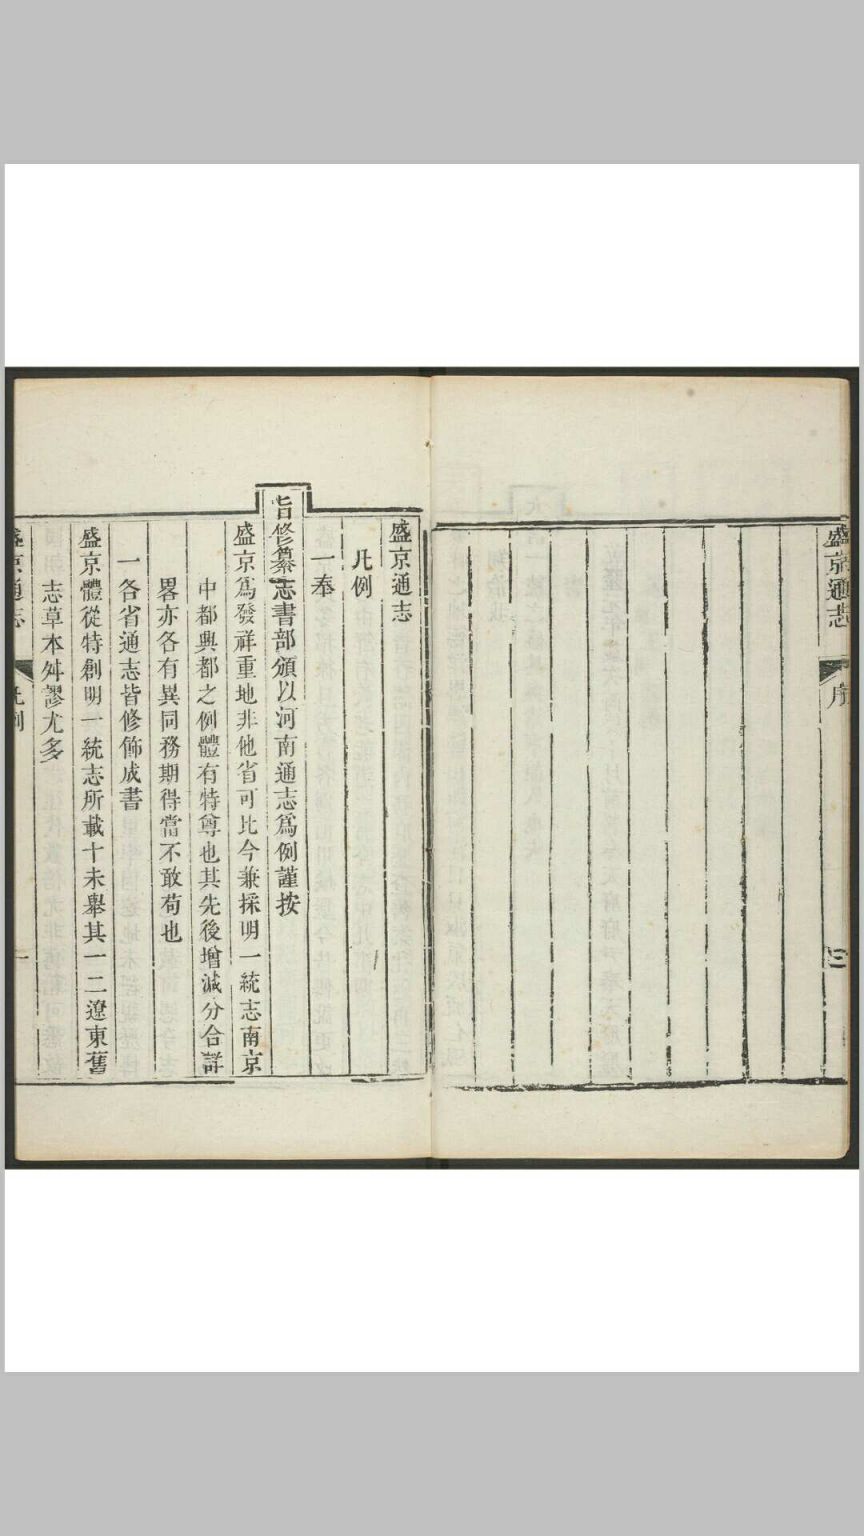 盛京通志
序
盛京通志
凡例
一奉
旨修纂志書部頒以河南通志爲例謹按
盛京爲發祥重地非他省可比今兼採明一統志南京
中都興都之例體有特尊也其先後增減分合詳
畧亦各有異同務期得當不敢苟也
一各省通志皆修飾成書
盛京體從特創明一統志所載十未舉其一二遼東舊
志草本舛謬尤多
盛京通志
凡例
一